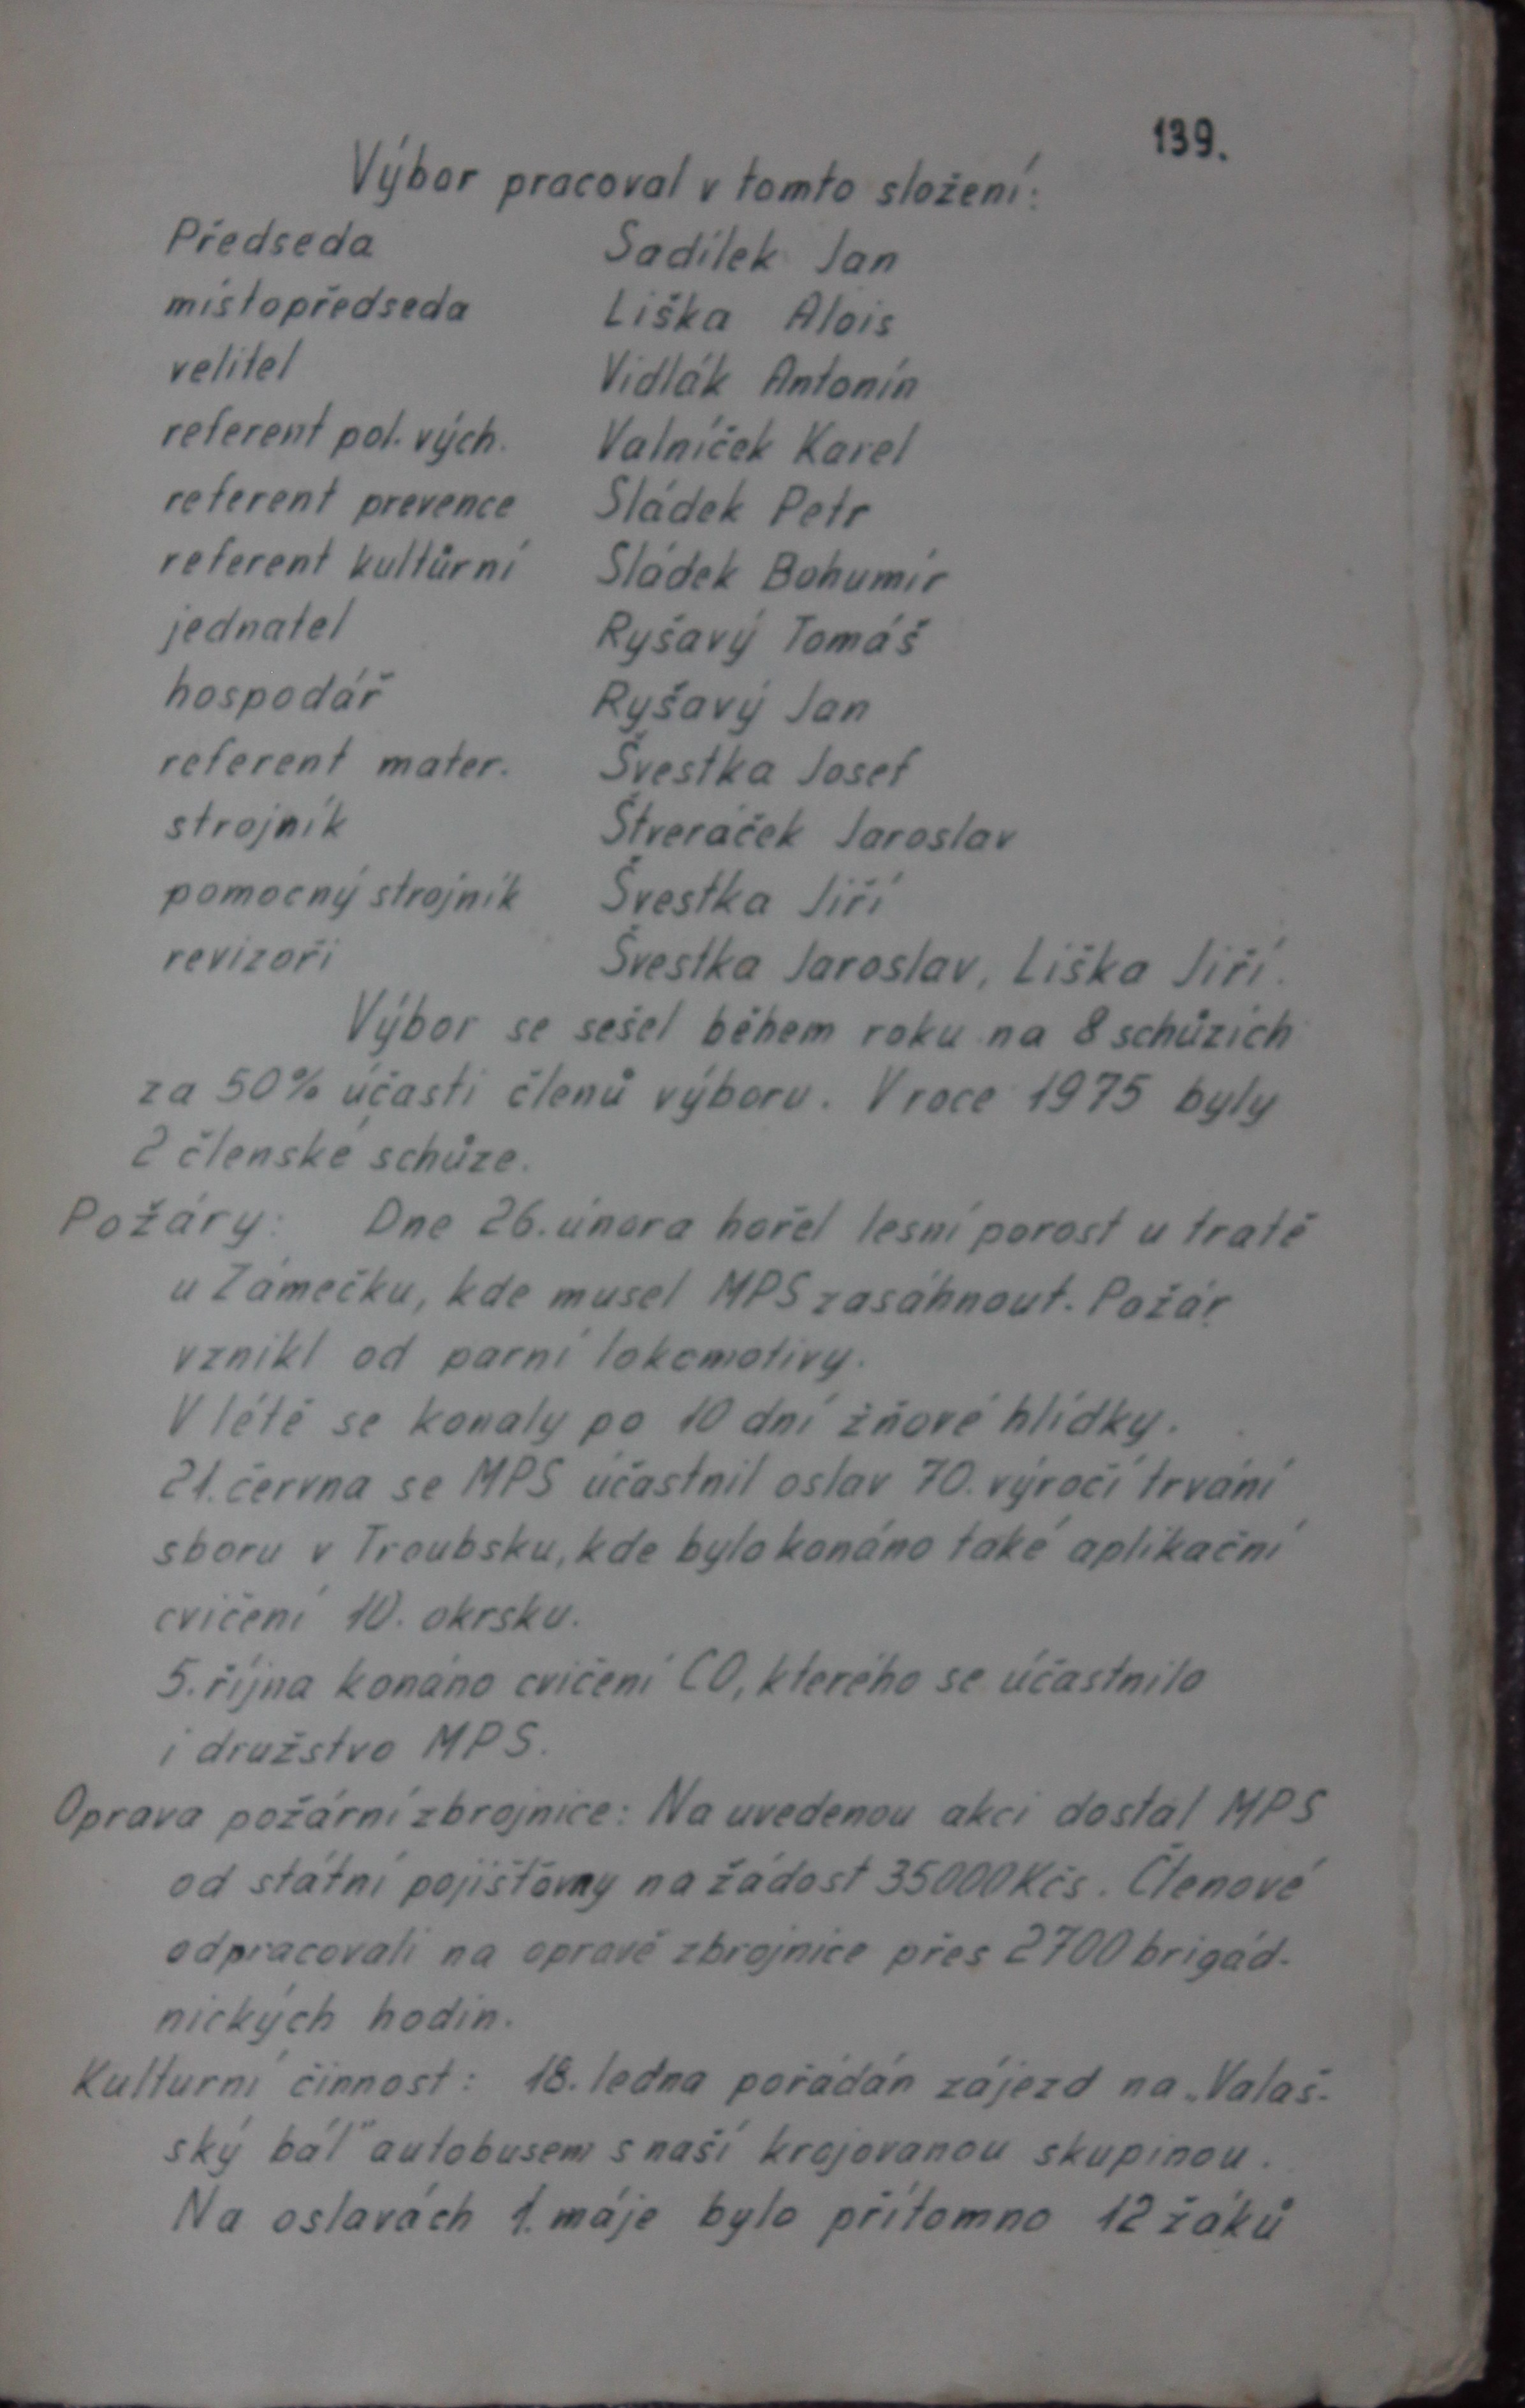 139.
Výbor pracoval v tomto složení:
Předseda Sadílek Jan
místopředseda Liška Alois
velitel Vidlák Antonín
referent pol. vých. Valníček Karel
referent prevence Sládek Petr
referent kultůrní Sládek Bohumír
jednatel Ryšavý Tomáš
hospodář Ryšavý Jan
referent mater. Švestka Josef
strojník Štveráček Jaroslav
pomocný strojník Švestka Jiří
revizoři Švestka Jaroslav, Liška Jiří.
Výbor se sešel během roku na 8 schůzích
za 50% účasti členů výboru. V roce 1975 byly
2 členské schůze.
Požáry: Dne 26. února hořel lesní porost u tratě
u Zámečku, kde musel MPS zasáhnout. Požár
vznikl od parní lokomotivy.
V létě se konaly po 10 dní žňové hlídky.
21. června se MPS účastnil oslav 70. výročí trvání
sboru v Troubsku, kde bylo konáno také aplikační
cvičení 10. okrsku.
5. října konáno cvičení CO, kterého se účastnilo
i družstvo MPS.
Oprava požární zbrojnice: Na uvedenou akci dostal MPS
od státní pojišťovny na žádost 35000 Kčs. Členové
odpracovali na opravě zbrojnice přes 2700 brigád-
nických hodin.
Kulturní činnost: 18. ledna pořádán zájezd na „Valaš-
ský bál" autobusem s naší krojovanou skupinou.
Na oslavách 1. máje bylo přítomno 12 žáků